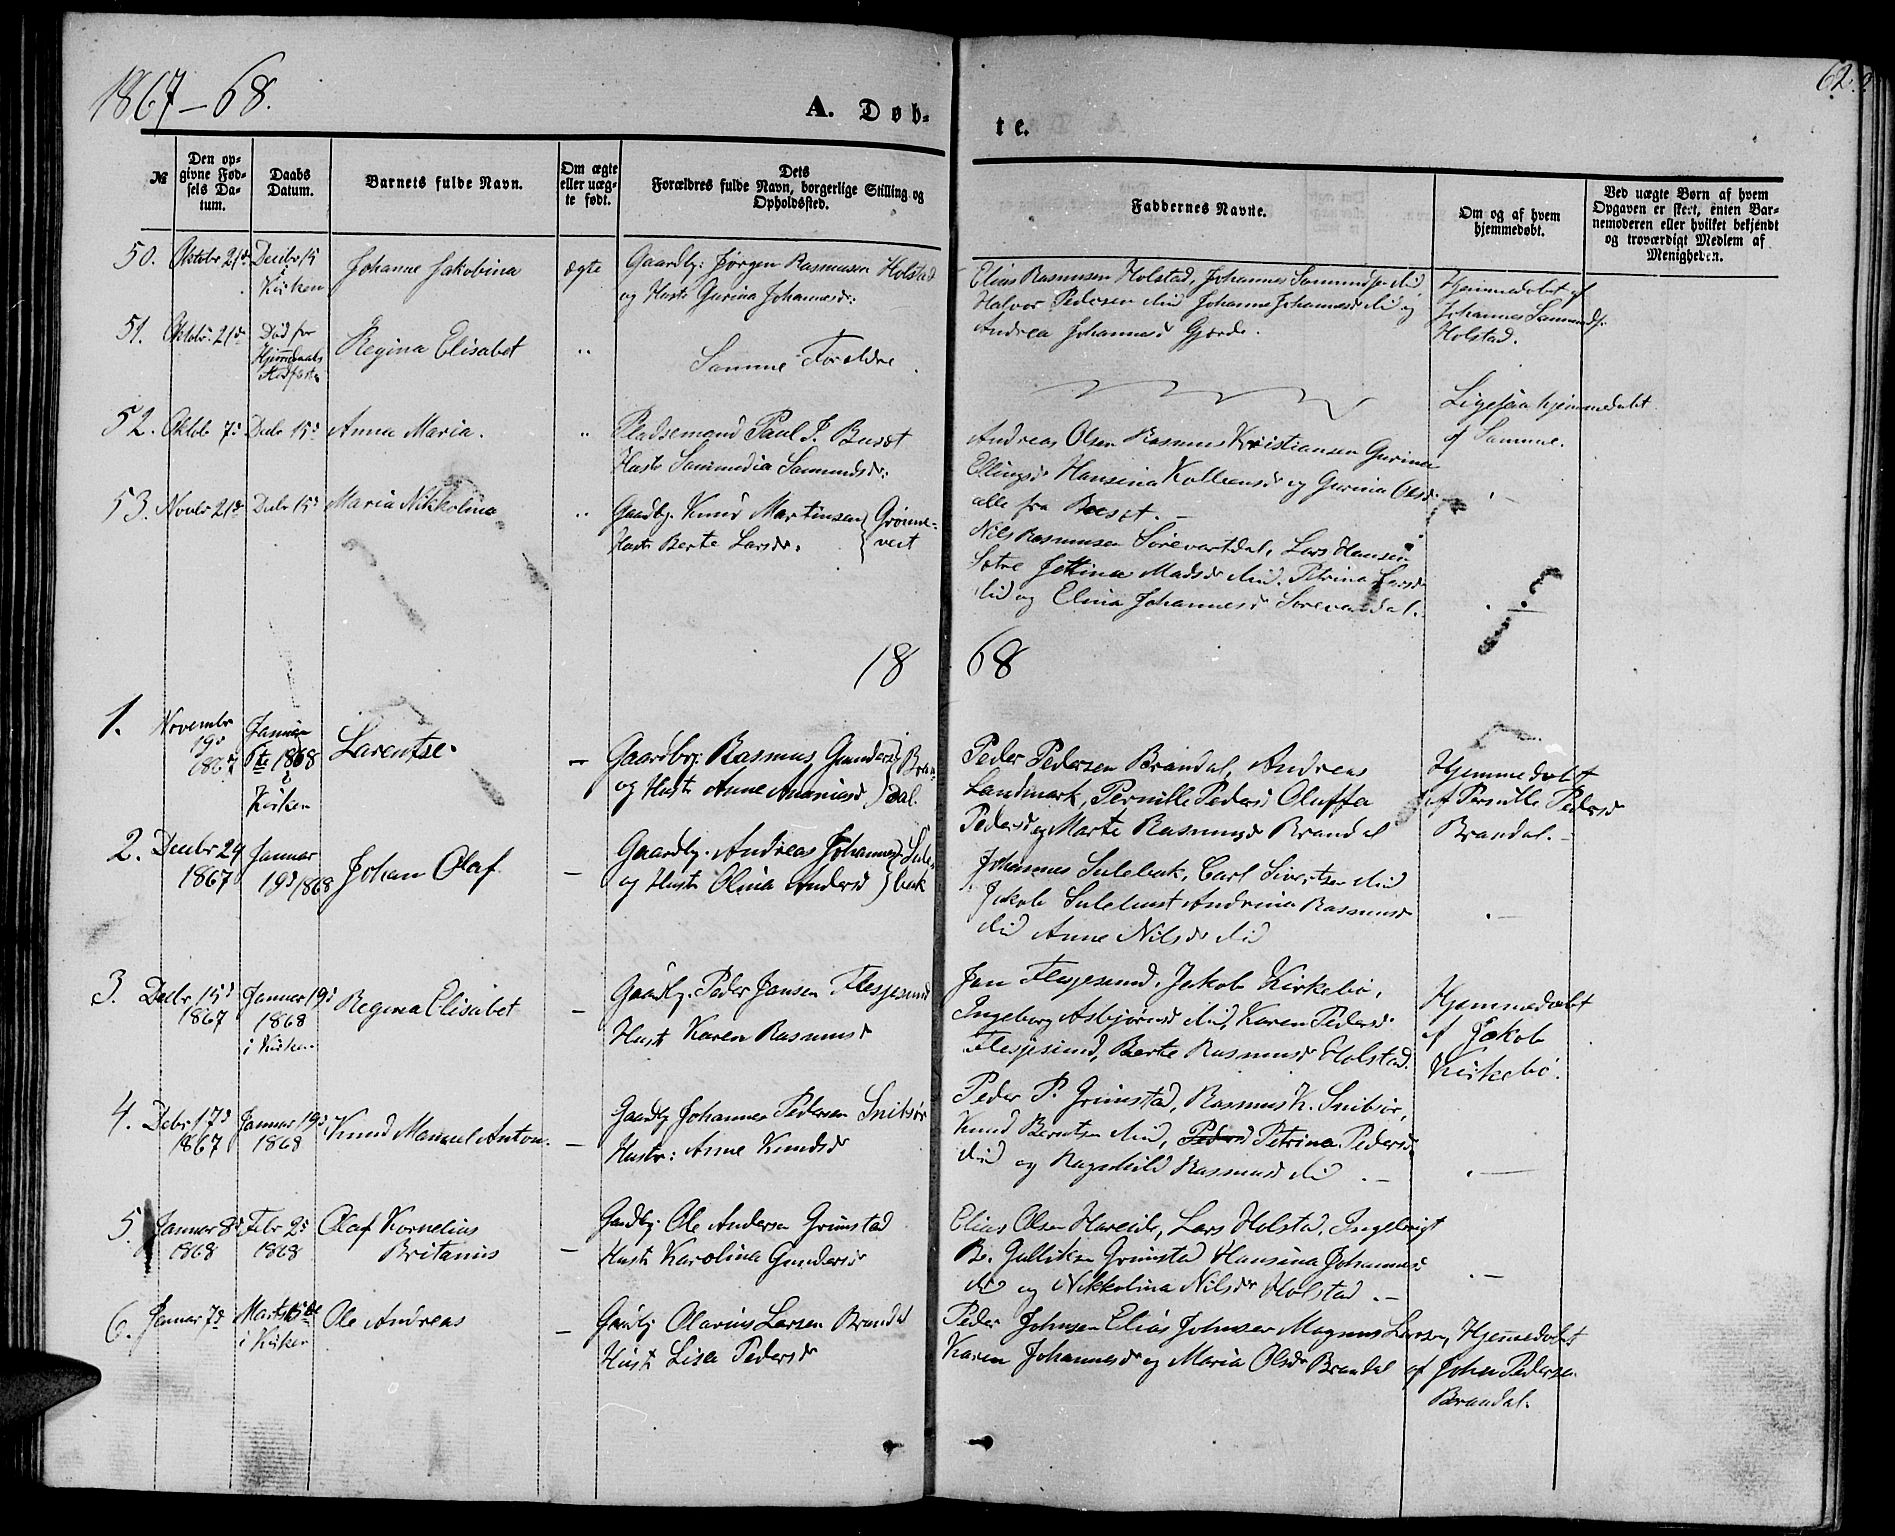 1867-68.
A. Døb-
te.
62.
№
Den op-
givne Fød-
sels Da-
tum.
Daabs
Datum.
Barnets fulde Navn.
Om ægte
eller uæg-
te født.
Dets
Forældres fulde Navn, borgerlige Stilling og
Opholdssted.
Faddernes Navne.
Om og af hvem
hjemmedøbt.
Ved uægte Børn af hvem
Opgaven er skeet, enten Bar-
nemoderen eller hvilket bekjendt
og troværdigt Medlem af
Menigheden.
50. Oktobr 21de Decbr 15 i Kirken Johanne Jakobina ægte
Gaardbr: Jørgen Rasmusen Holstad
og Hustr Gurina Johannesdr:
Elias Rasmusen Holstad, Johannes Samundsen ibid
Halvor Pedersen ibid Johanne Johannesdr ibid og
Andrea Johannesdr Gjerde.
Hjemmedøbt af
Johannes Samundsr
Holstad.
51. Oktobr. 21de Død før
Stadfæst
Regina Elisabet "
Samme Forældre.
Ligesaa hjemmedøbt
af Samme.
52. Oktbr 7de Decbr 15de Anna Maria. "
Pladsemand Paul J. Buset
Hustr Sammedia Samundsdr:
Andreas Olsen Rasmus Kristiansen Gurina
Ellingsdr Hansina Kolbensdr og Gurina Olsdr
alle fra Buset. -
53. Novbr 21de Decbr 15de Maria Nikkolina "
Gaardbr. Knud Martinsen Grønne-
Hustr Berte Larsdr. veit
Nils Rasmusen Sørevartdal, Lars Hansen
Sætre Jettina Madsdr ibid, Petrina Larsdr
ibid og Elina Johannesdr Sørevartdal.
18 68
1. Novembr
19de
1867
Januar
6te 1868
i
Kirken
Larentse. -
Gaardbr: Rasmus Gunders Bran-
og Hustr Anne Ananiasdr dal.
Peder Pedersen Brandal, Andreas
Landmark, Pernille Pedersdr Oluffa
Pedersdr og Marte Rasmusdr Brandal
Hjemmedøbt
af Pernille Pedersdr
Brandal. -
2. Decbr 24
1867
Januar
19de 1868
Johan Olaf -
Gaardbr. Andreas Johannes Sule-
og Hustr Olina Andersdr bak
Johannes Sulebak, Carl Sivertsen ibid
Jakob Sulebust Andrina Rasmusdr
ibid Anne Nilsdr ibid
3. Decbr 15de
1867
Januar 19de
1868
i Kirken
Regina Elisabet -
Gaardbr. Peder Jansen Flesjesund
Hustr Karen Rasmusdr
Jan Flesjesund, Jakob Kirkebø,
Ingeborg Asbjørnsdr ibid, Karen Pedersdr
Flesjesund, Berte Rasmusdr Holstad.
Hjemmedøbt
af Jakob
Kirkebø.
4. Debr 17de
1867
Januar 19de
1868
Knud Manuel Anton. -
Gaardbr Johannes Pedersen Snibsør
Hustr: Anne Knudsdr
Peder P. Grimstad, Rasmus K. Snibsør,
Knud Berntsen ibid, Pedersd Petrina Pedersdr
ibid og Ragnhild Rasmusdr ibid. -
5. Januar 8de
1868
Febr 2de
1868
Olaf Kornelius
Britanius -
Gaardbr. Ole Andersen Grimstad
Hustr Karolina Gundersdr
Elias Olsen Hareide, Lars Holstad, Ingebrigt
B. Gulliksen Grimstad Hansina Johannesdr
ibid og Nikkolina Nilsdr Holstad. -
6. Januar 7de Marts 15de
i Kirken
Ole Andreas -
Gaardbr Olarius Larsen Brandal
Hustr Lisa Pedersdr
Peder Johnsen Elias Johnsen Magnus Larsen,
Karen Johannesdr og Maria Olsdr Brandal
Hjemmedøbt
af John Pedersen
Brandal.